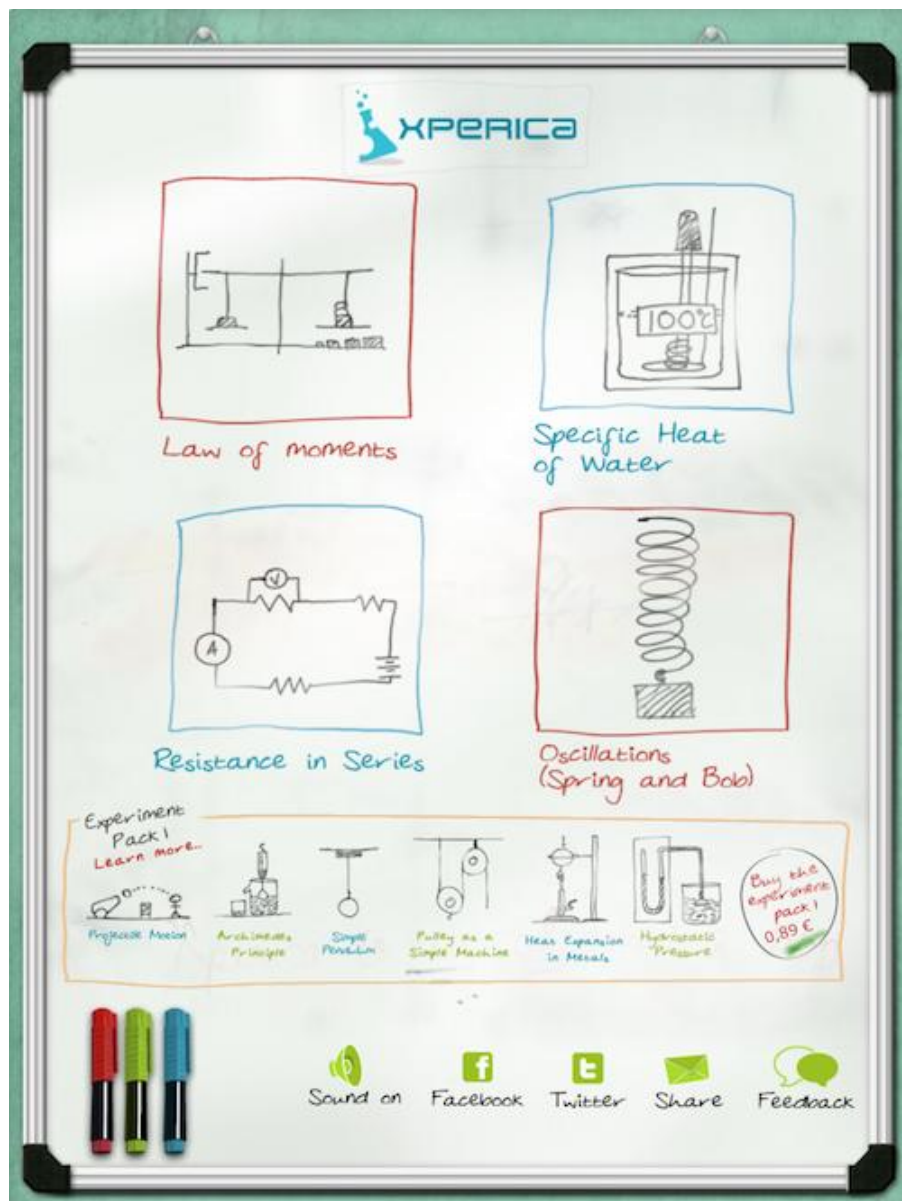 XPERICA
Law of moments
100°C
Specific Heat
of Water
V
A
Resistance in Series
Oscillations
(Spring and Bob)
Experiment
Pack 1
Learn more...
Projectile Motion
Archimedes
Principle
Simple
Pendulum
Pulley as a
Simple Machine
Heat Expansion
in Metals
Hydrostatic
Pressure
Buy the
experiment
pack 1
0,89 €
Sound on
Facebook
Twitter
Share
Feedback